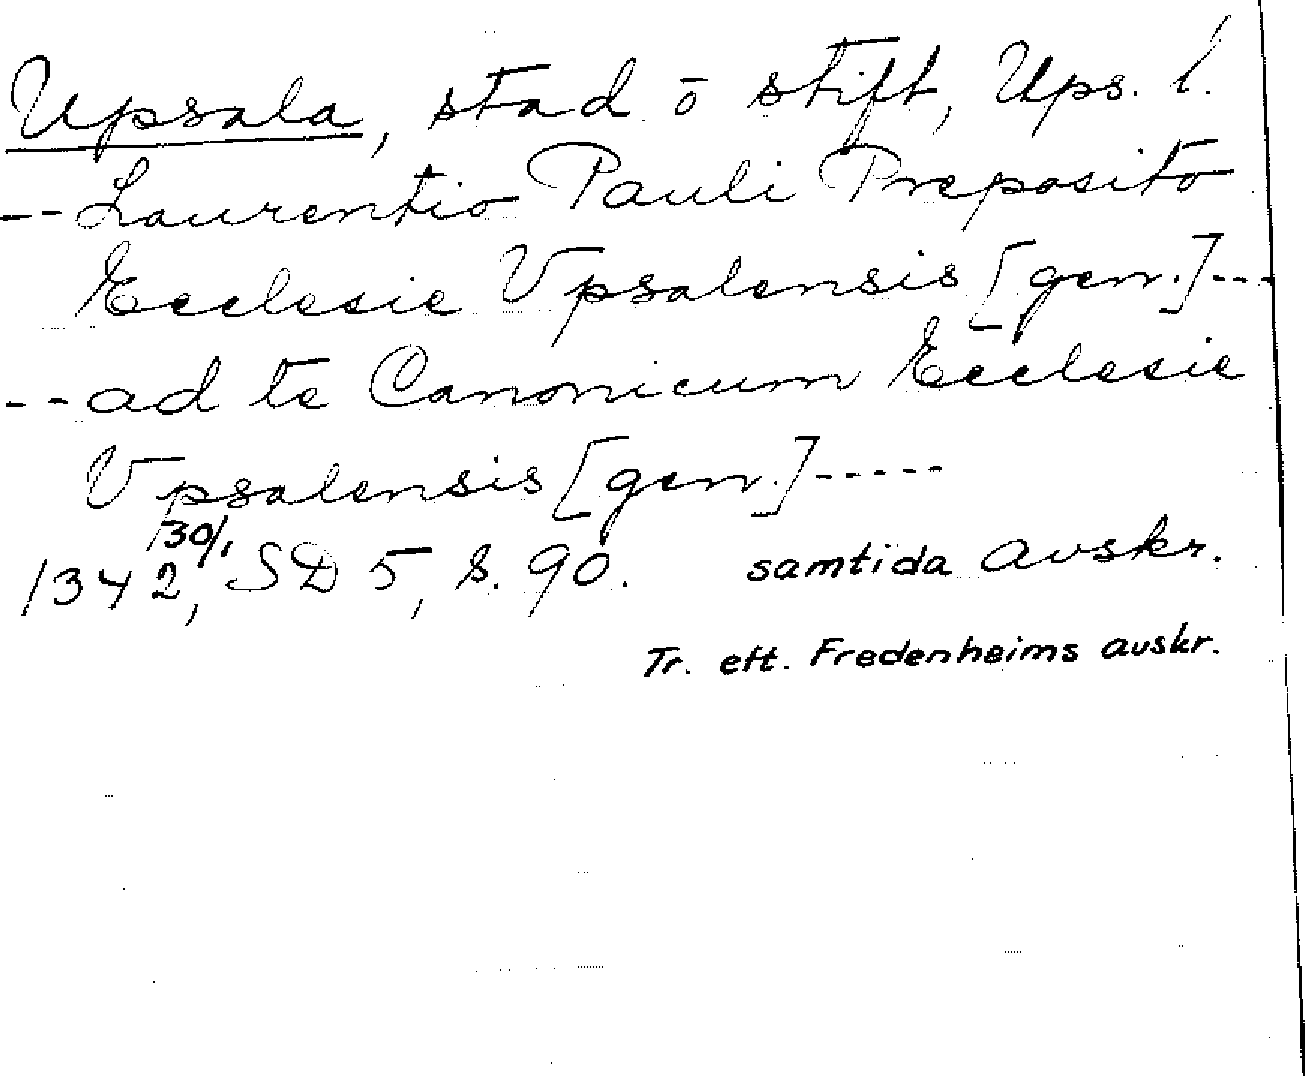 Upsala, stad ō stift, Ups. l.
-- Laurentio Pauli Preposito
Ecclesie Vpsalensis [gen.] ---
-- ad te Canonicum Ecclesie
Vpsalensis [gen.] -----
30/1
1342, SD 5, s. 90. samtida avskr.
Tr. eft. Fredenheims avskr.